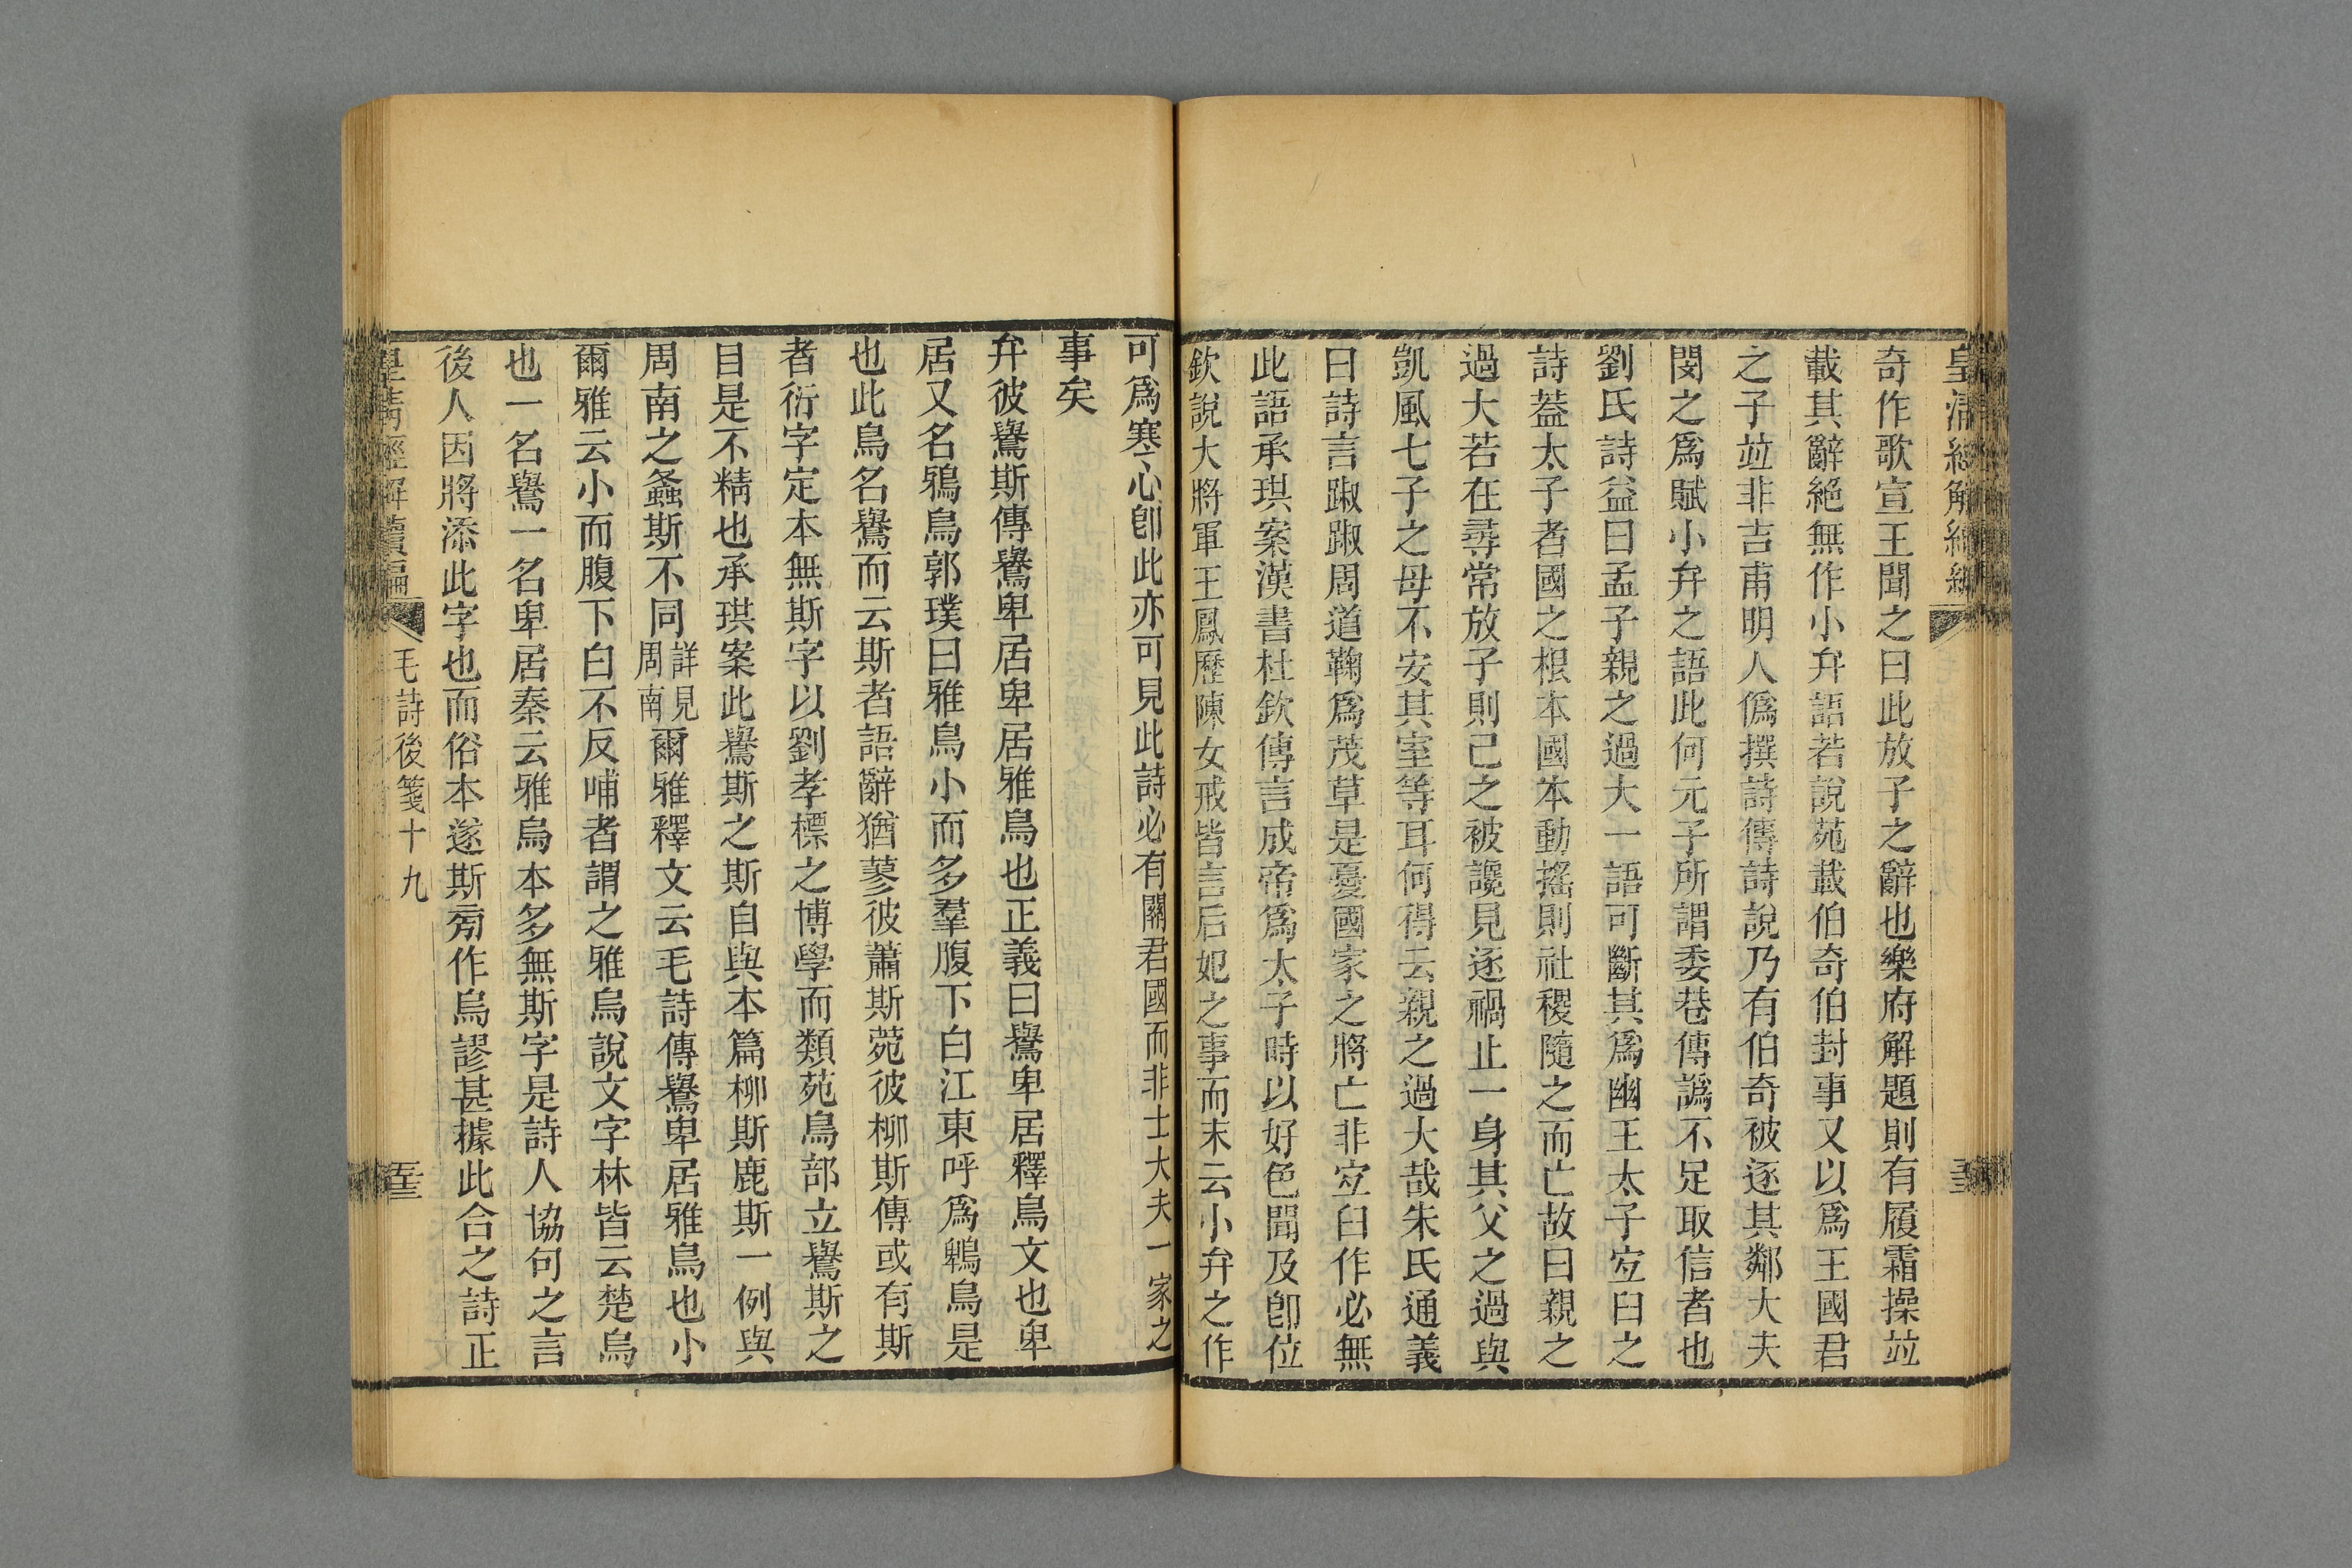 皇清經解續編
奇作歌宣王聞之曰此放子之辭也樂府解題則有履霜操竝
載其辭絕無作小弁語若說苑載伯奇伯封事又以爲王國君
之子竝非吉甫明人僞撰詩傳詩說乃有伯奇被逐其鄰大夫
閔之爲賦小弁之語此何元子所謂委巷傳譌不足取信者也
劉氏詩益曰孟子親之過大一語可斷其爲幽王太子宐臼之
詩葢太子者國之根本國本動搖則社稷隨之而亡故曰親之
過大若在尋常放子則己之被讒見逐禍止一身其父之過與
凱風七子之母不安其室等耳何得云親之過大哉朱氏通義
曰詩言踧踧周道鞠爲茂草是憂國家之將亡非宐臼作必無
此語承珙案漢書杜欽傳言成帝爲太子時以好色聞及卽位
欽說大將軍王鳳歷陳女戒皆言后妃之事而末云小弁之作
可爲寒心卽此亦可見此詩必有關君國而非士大夫一家之
事矣
弁彼鸒斯傳鸒卑居卑居雅烏也正義曰鸒卑居釋鳥文也卑
居又名鴉烏郭璞曰雅烏小而多羣腹下白江東呼爲鵯烏是
也此鳥名鸒而云斯者語辭猶蓼彼蕭斯菀彼柳斯傳或有斯
者衍字定本無斯字以劉孝標之博學而類苑鳥部立鸒斯之
目是不精也承珙案此鸒斯之斯自與本篇柳斯鹿斯一例與
周南之螽斯不同詳見周南爾雅釋文云毛詩傳鸒卑居雅烏也小
爾雅云小而腹下白不反哺者謂之雅烏說文字林皆云楚烏
也一名鸒一名卑居秦云雅烏本多無斯字是詩人協句之言
後人因將添此字也而俗本遂斯旁作鳥謬甚據此合之詩正
皇淸經解續編
毛詩後箋十九